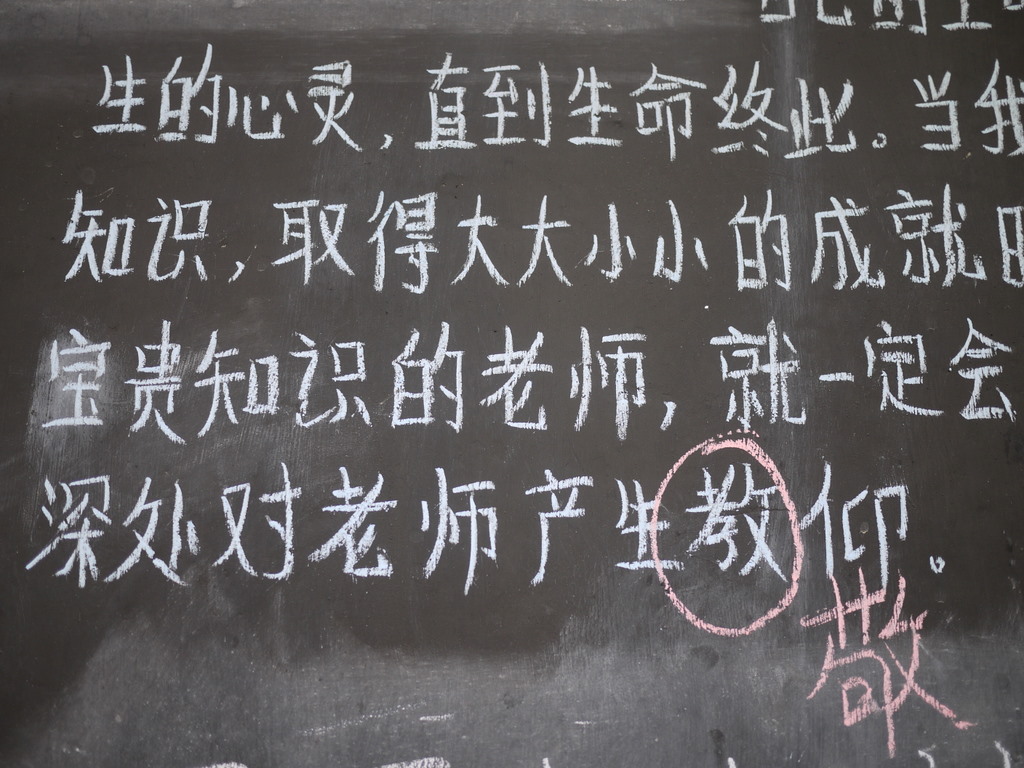 生的心灵，直到生命终止。当我
知识，取得大大小小的成就时
宝贵知识的老师，就一定会
深处对老师产生教仰。
敬